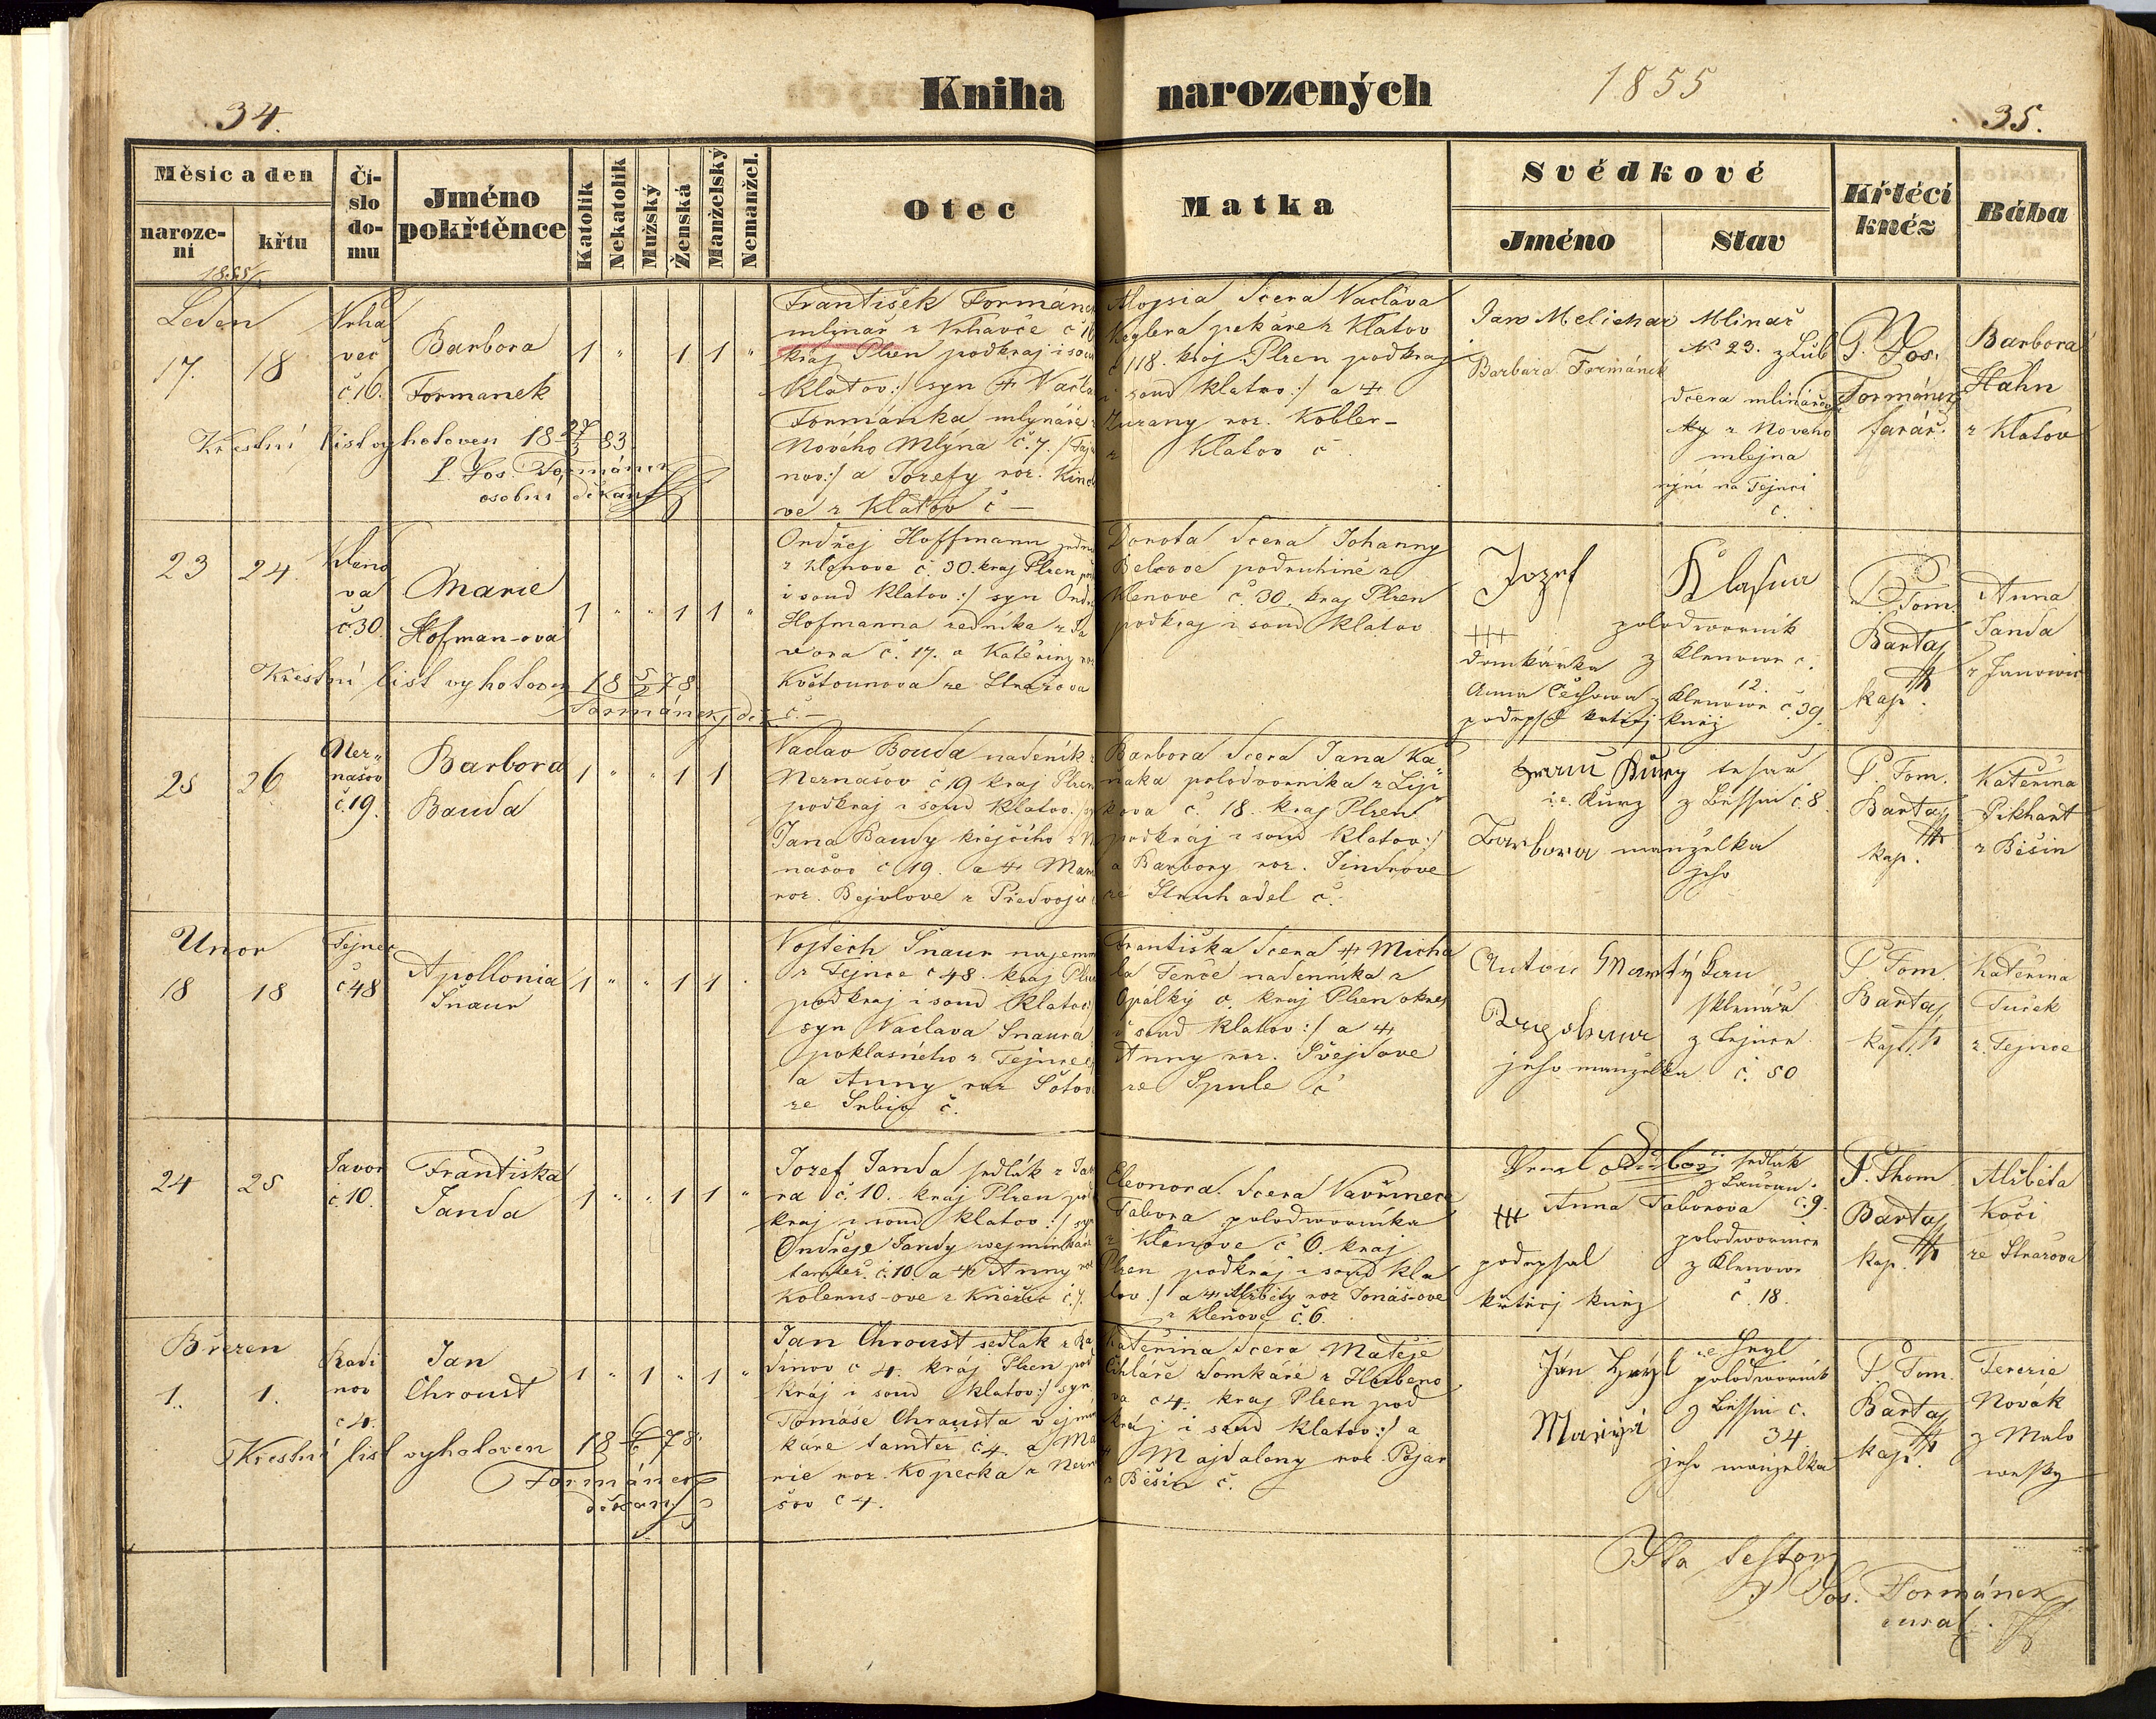 34.
Kniha narozených
1855
35.
Měsíc a den
naroze-
ní
křtu
Čí-
slo
do-
mu
Jméno
pokřtěnce
Katolík
Nekatolík
Mužský
Ženská
Manželský
Nemanžel.
Otec
Matka
Svědkové
Jméno
Stav
Křtící
kněz
Bába
1855
Leden
17.
18
Vrha
več
č.16.
Barbora
Formanek
1 " 1 1 "
František Formánek
mlinař z Vrhavče č 16
kraj Plzen podkraj i soud
Klatov:/ syn Václa
Formánka mlynáře
Nového Mlýna č.7.
nov:/ a Jozefy roz.
vé z Klatov č —
Aloysia dcera Václava
Keglera pekáře z Klatov
č 118. kraj Plzen podkraj
i soud klatov:/ a
Zuzany roz. Kobler-
z Klatov č.
Jan Melichar
Barbara Formánek
Mlinař
No 23. z Lub
dcera mlinářov
z Noveho
mlejna
nyní na Tejnci
č.
P. Jos.
Formánek
farář.
Barbora
Hahn
z Klatov
Křestní list vyhotoven 18 27/3 83.
P. Jos. Formánek
osobní děkan
23
24.
Kleno
va
č.30.
Marie
Hofman-ová
1 " " 1 1 "
Ondřej Hoffmann
z Klenove č. 30. kraj Plzen
i soud Klatov:/ syn Ondř
Hofmanna
vora č. 17. a Kateřiny roz
Květounova ze Stražova
č.—
Dorota dcera Johanny
Belcove podruhině z
Klenove č. 30. kraj Plzen
podkraj i soud Klatov
Jozef
Klasna
+++
polodwornik
domkárka z Klenowe č.
12.
Anna Čechowa z Klenowe č. 39.
podepsal krtici kněz
P. Tom.
Bartaj
kap.
Anna
Janda
z Janowic
Křestní list vyhotoven 18 5/2 78
Formánek, děk.
25
26
Nez"
našov
č.19.
Barbora
Bauda
1 " " 1 1
Václav Bouda nadeník z
Neznašov č 19 kraj Plzen
podkraj i soud Klatov.
Jana Baudy krejčího z N
našov č 19. a + Mari
roz. Bejvlove z Předvojo
Barbora dcera Jana Ka
naka polodvornika z Lip
kova č. 18. kraj Plzen
podkráj i soud Klatov:/
a Barbory roz. Jindrove
ze Struhadel č.
Kurz tesař
i.e. Kurz z Bessin č. 8.
Barbora manželka
jeho
P. Tom.
Bartaj
kap.
Kateřina
Pikhart
z Běšin
Unor
18
18
Tejnec
č 48
Apollonia
Šnaur
1 " " 1 1 .
Vojtěch Šnaur
z Tejnce č 48. kraj Plzen
podkraj i soud Klatov
syn Václava Šnaura
poklasného z Tejnce
a Anny roz Šotove
ze Srbic č.
Františka dcera + Micha
la Tenče nadenníka z
Opálky č. kraj Plzen okres
i soud Klatov:/ a +
Anny roz. Švejdove
ze Spule č
Anton Martýkan
sklenář
z Tejnce
jeho manželka č. 50
P. Tom.
Bartaj
kap.
Kateřina
Tuček
z. Tejnce
24
25
Javor
č.10.
Františka
Janda
1 " " 1 1 "
Jozef Janda sedlák z Jav
ra č. 10. kraj Plzen pod
kraj i soud klatov:/ syn
Ondřeje Jandy wejminkáře
tamtéž. č.10. a + Anny roz
Kolenus-ove z Kněžic č.7.
Eleonora. dcera Vavřince
Tabora polodwornika
z Klenove č 6. kraj
Plzen podkraj i soud Kla
tov:/ a + Alžběty roz Jonáš-ove
z Klenove č.6.
sedlák
+++ Anna Taborova č.9.
polodwornice
podepsal z Klenowe
křticj kněz č. 18.
P. Thom
Bartaj
kap.
Alžběta
Kočí
ze Stražova
Březen
1.
1.
Radi
nov
č 4.
Jan
Chroust
1 " 1 " 1 "
Jan Chroust sedlák z Ra
dinov č 4. kraj Plzen pod
kraj i soud Klatov:/ syn
Tomáše Chrousta vejmin
káře tamtéž č 4. a Ma
rie roz. Kopecka z Nezna
šov č 4.
Kateřina dcera Matěje
Cihláře domkáře z Hubeno
va č 4. kraj Plzen pod
kráj i soud Klatov:/ a
+ Majdaleny roz. Pojar
z Běšin č.
Ján Hryzl
i.e. Hryzl
polodwornik
z Bessin č.
34
Mariya
jeho manželka
P. Tom.
Bartaj
kap.
Terezie
Novák
z Malo
wesky
Křestní list vyhotoven 18 7/6 78.
Formánek
děkan
Ita testor
P Jos. Formánek
curat.